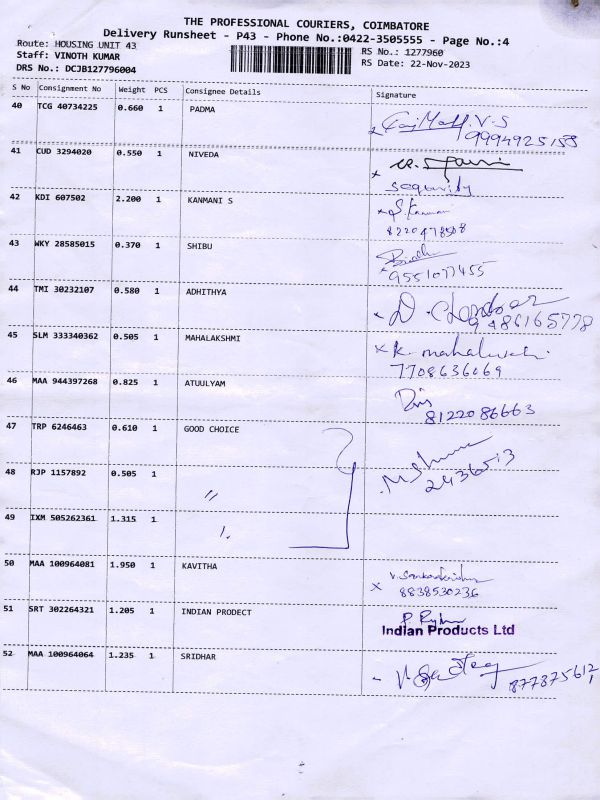 THE PROFESSIONAL COURIERS, COIMBATORE
Delivery Runsheet - P43 - Phone No.:0422-3505555 - Page No.:4
Route: HOUSING UNIT 43
RS No.: 1277960
Staff: VINOTH KUMAR
RS Date: 22-Nov-2023
DRS No.: DCJB127796004
S No Consignment No Weight PCS Consignee Details Signature
40 TCG 40734225 0.660 1 PADMA
V.S
41 CUD 3294020 0.550 1 NIVEDA
42 KDI 607502 2.200 1 KANMANI S
43 WKY 28585015 0.370 1 SHIBU
9551077455
44 TMI 30232107 0.580 1 ADHITHYA
9486165778
45 SLM 333340362 0.505 1 MAHALAKSHMI
x K.
7708636069
46 MAA 944397268 0.825 1 ATUULYAM
8122086663
47 TRP 6246463 0.610 1 GOOD CHOICE
2436513
48 RJP 1157892 0.505 1 "
49 IXM 505262361 1.315 1
50 MAA 100964081 1.950 1 KAVITHA
x
8838530236
51 SRT 302264321 1.205 1 INDIAN PRODECT
Indian Products Ltd
52 MAA 100964064 1.235 1 SRIDHAR